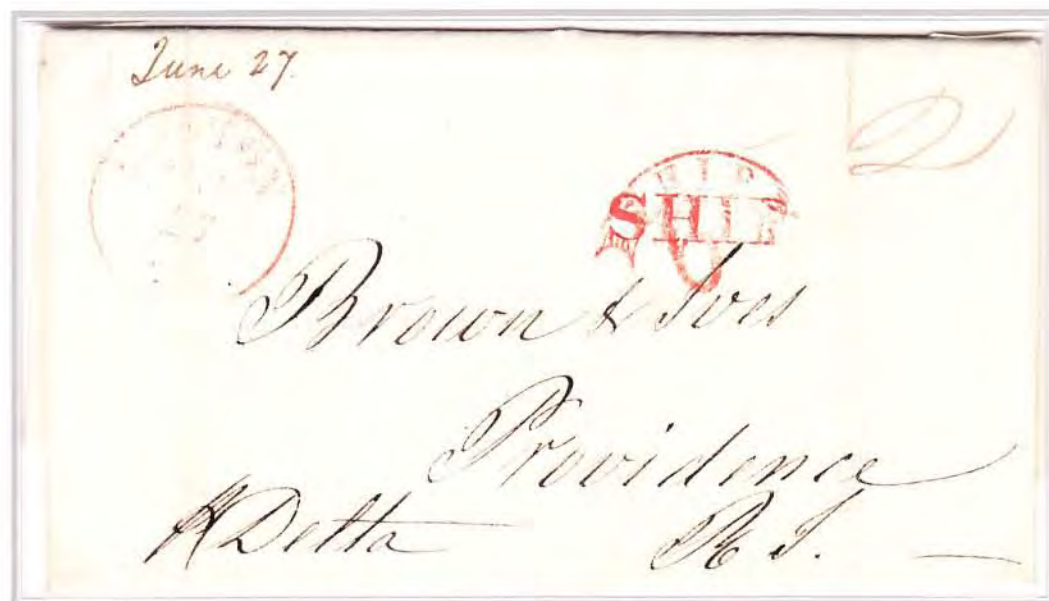 June 27.
SHIP
Brown & Ives
Providence
Delta
R I.